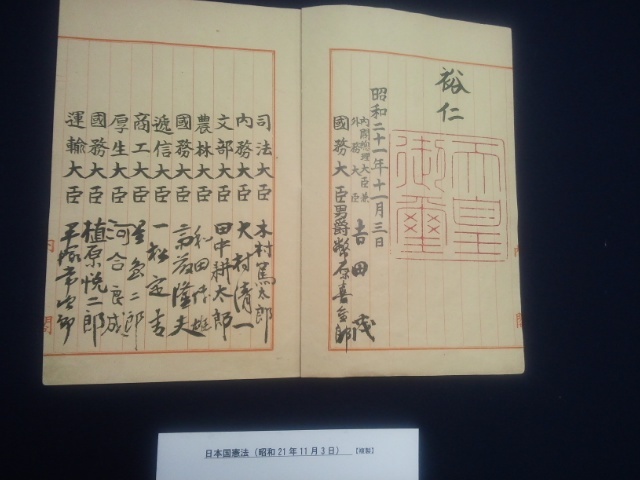 裕仁
天皇御璽
昭和二十一年十一月三日
内閣総理大臣兼
外務大臣 吉田茂
國務大臣 男爵幣原喜重郎
司法大臣 木村篤太郎
内務大臣 大村清一
文部大臣 田中耕太郎
農林大臣 和田博雄
國務大臣 斎藤隆夫
逓信大臣 一松定吉
商工大臣 星島二郎
厚生大臣 河合良成
國務大臣 植原悦二郎
運輸大臣 平塚常次郎
内閣
内閣
日本国憲法(昭和21年11月3日) 【複製】